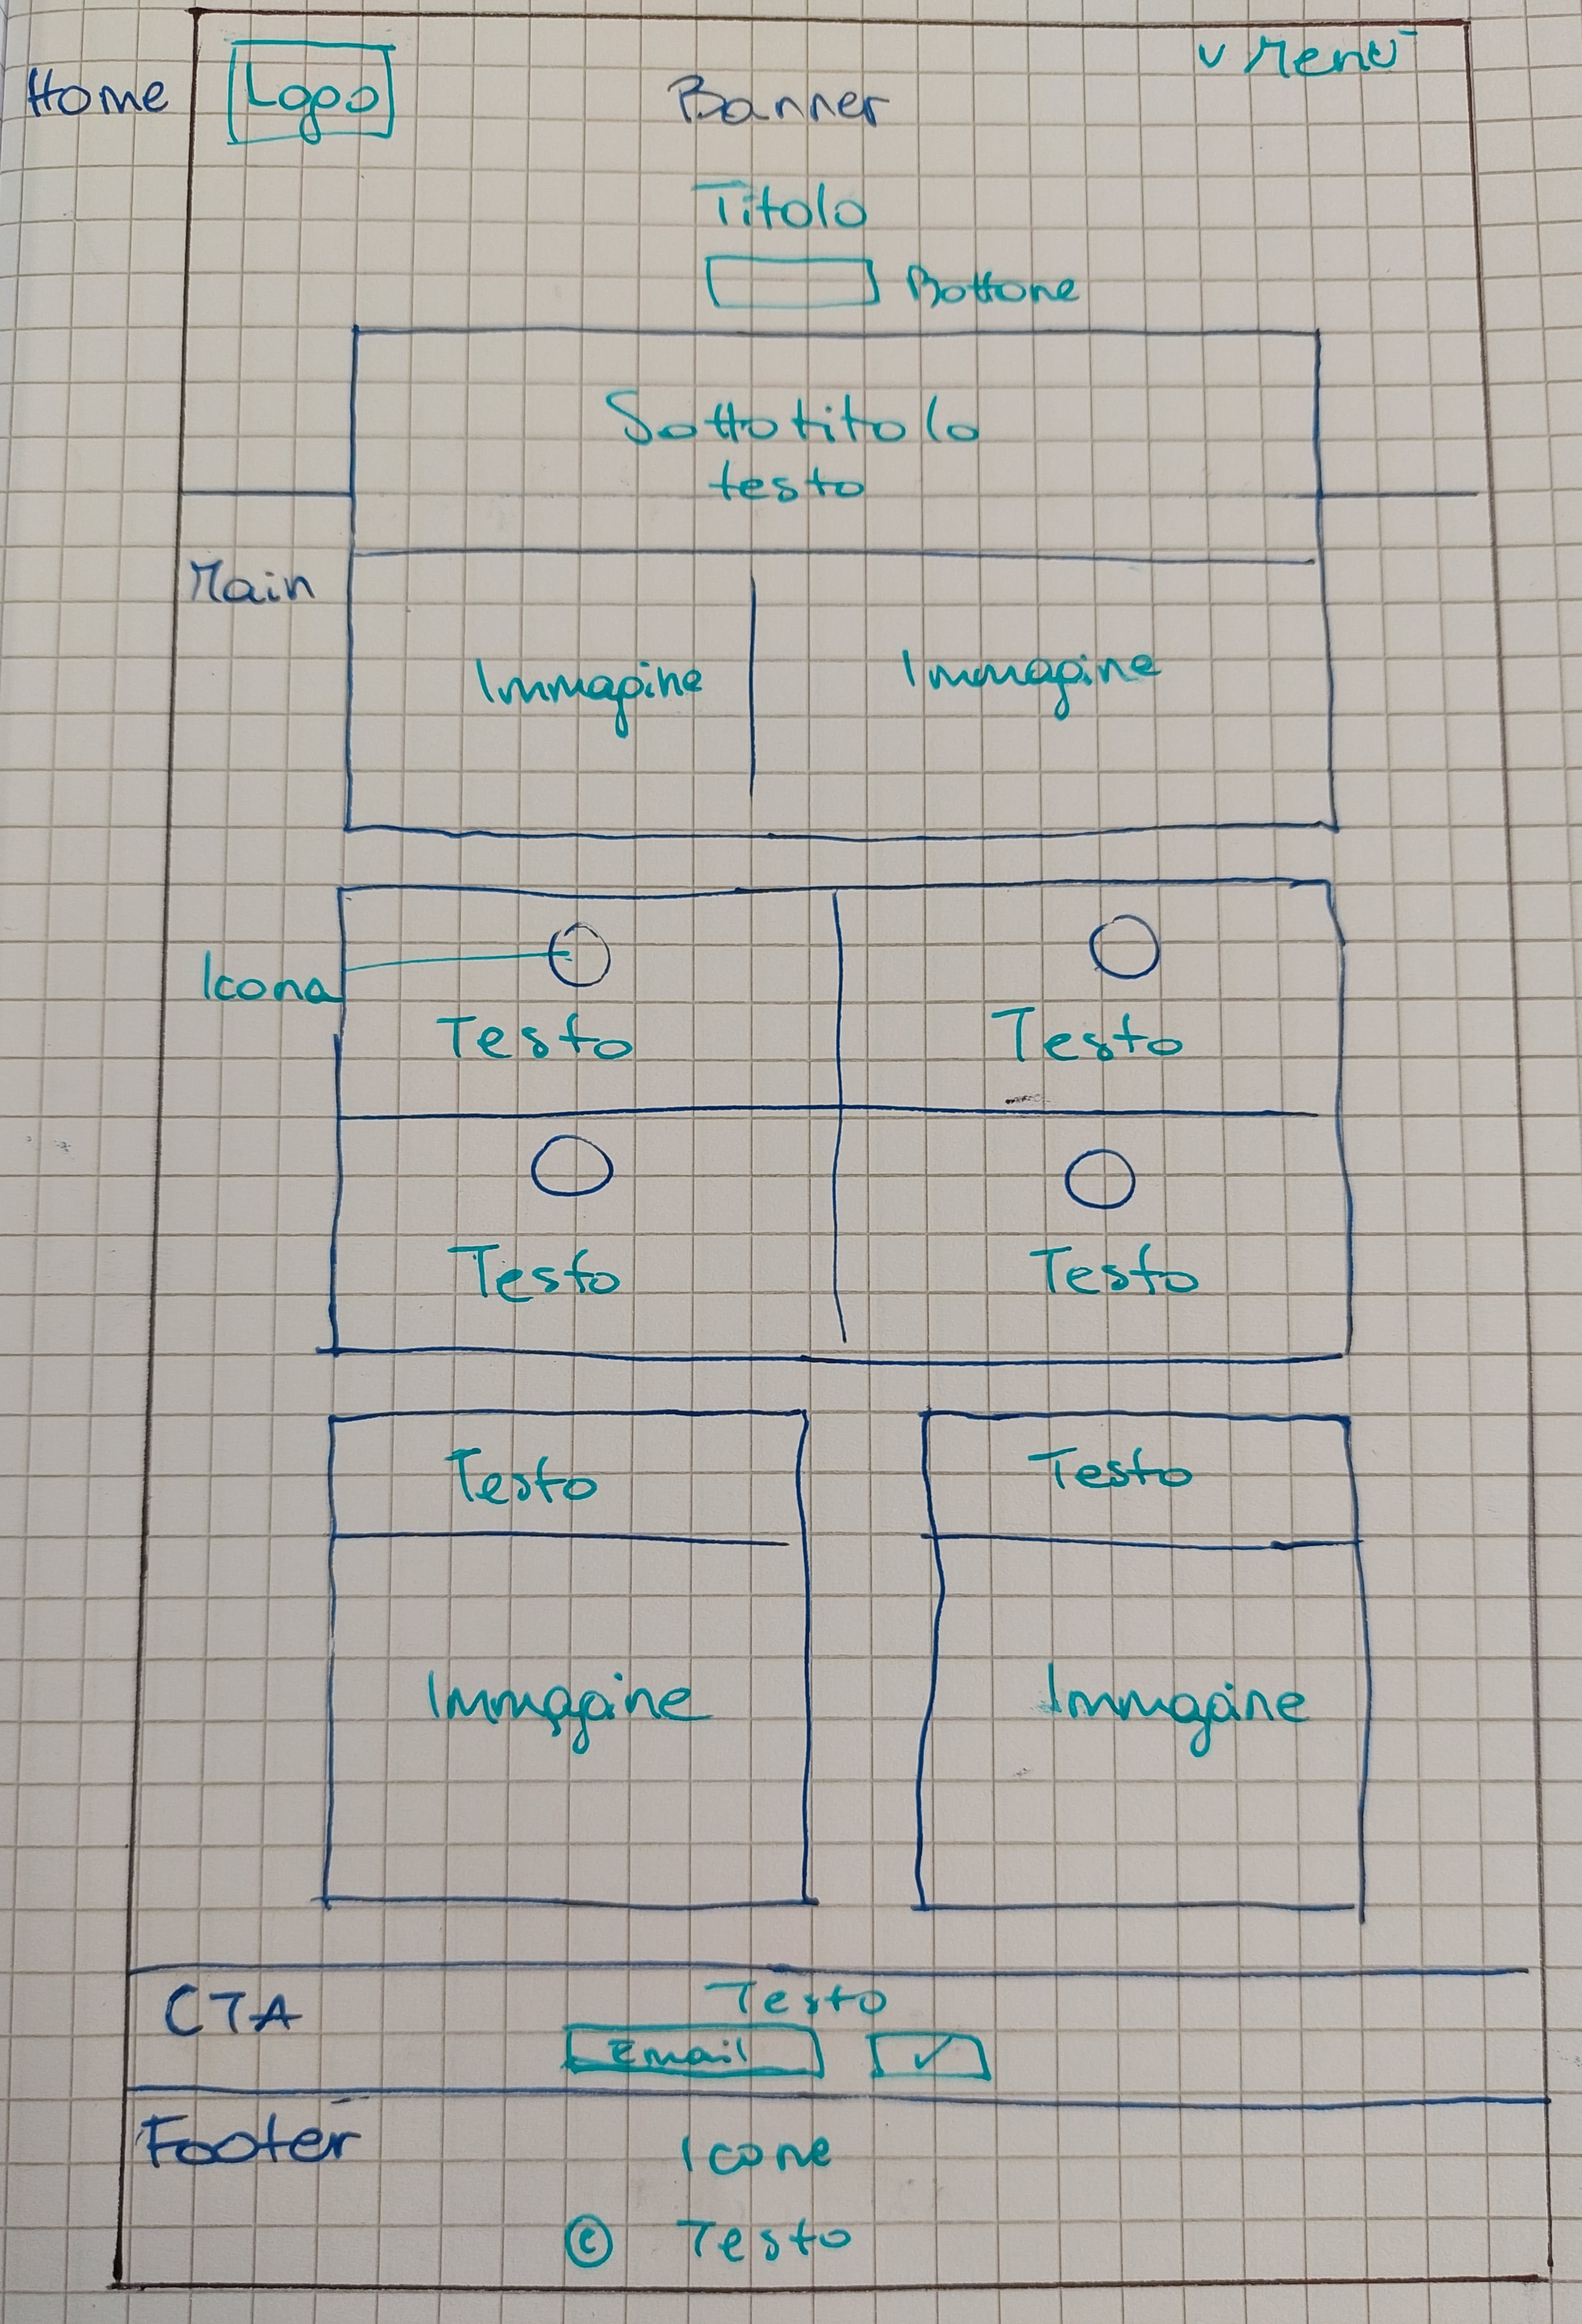 Home
Logo
Banner
v Menù
Titolo
Bottone
Sottotitolo
testo
Main
Immagine
Immagine
Icona
Testo
Testo
Testo
Testo
Testo
Testo
Immagine
Immagine
CTA
Testo
Email ✓
Footer
Icone
© Testo